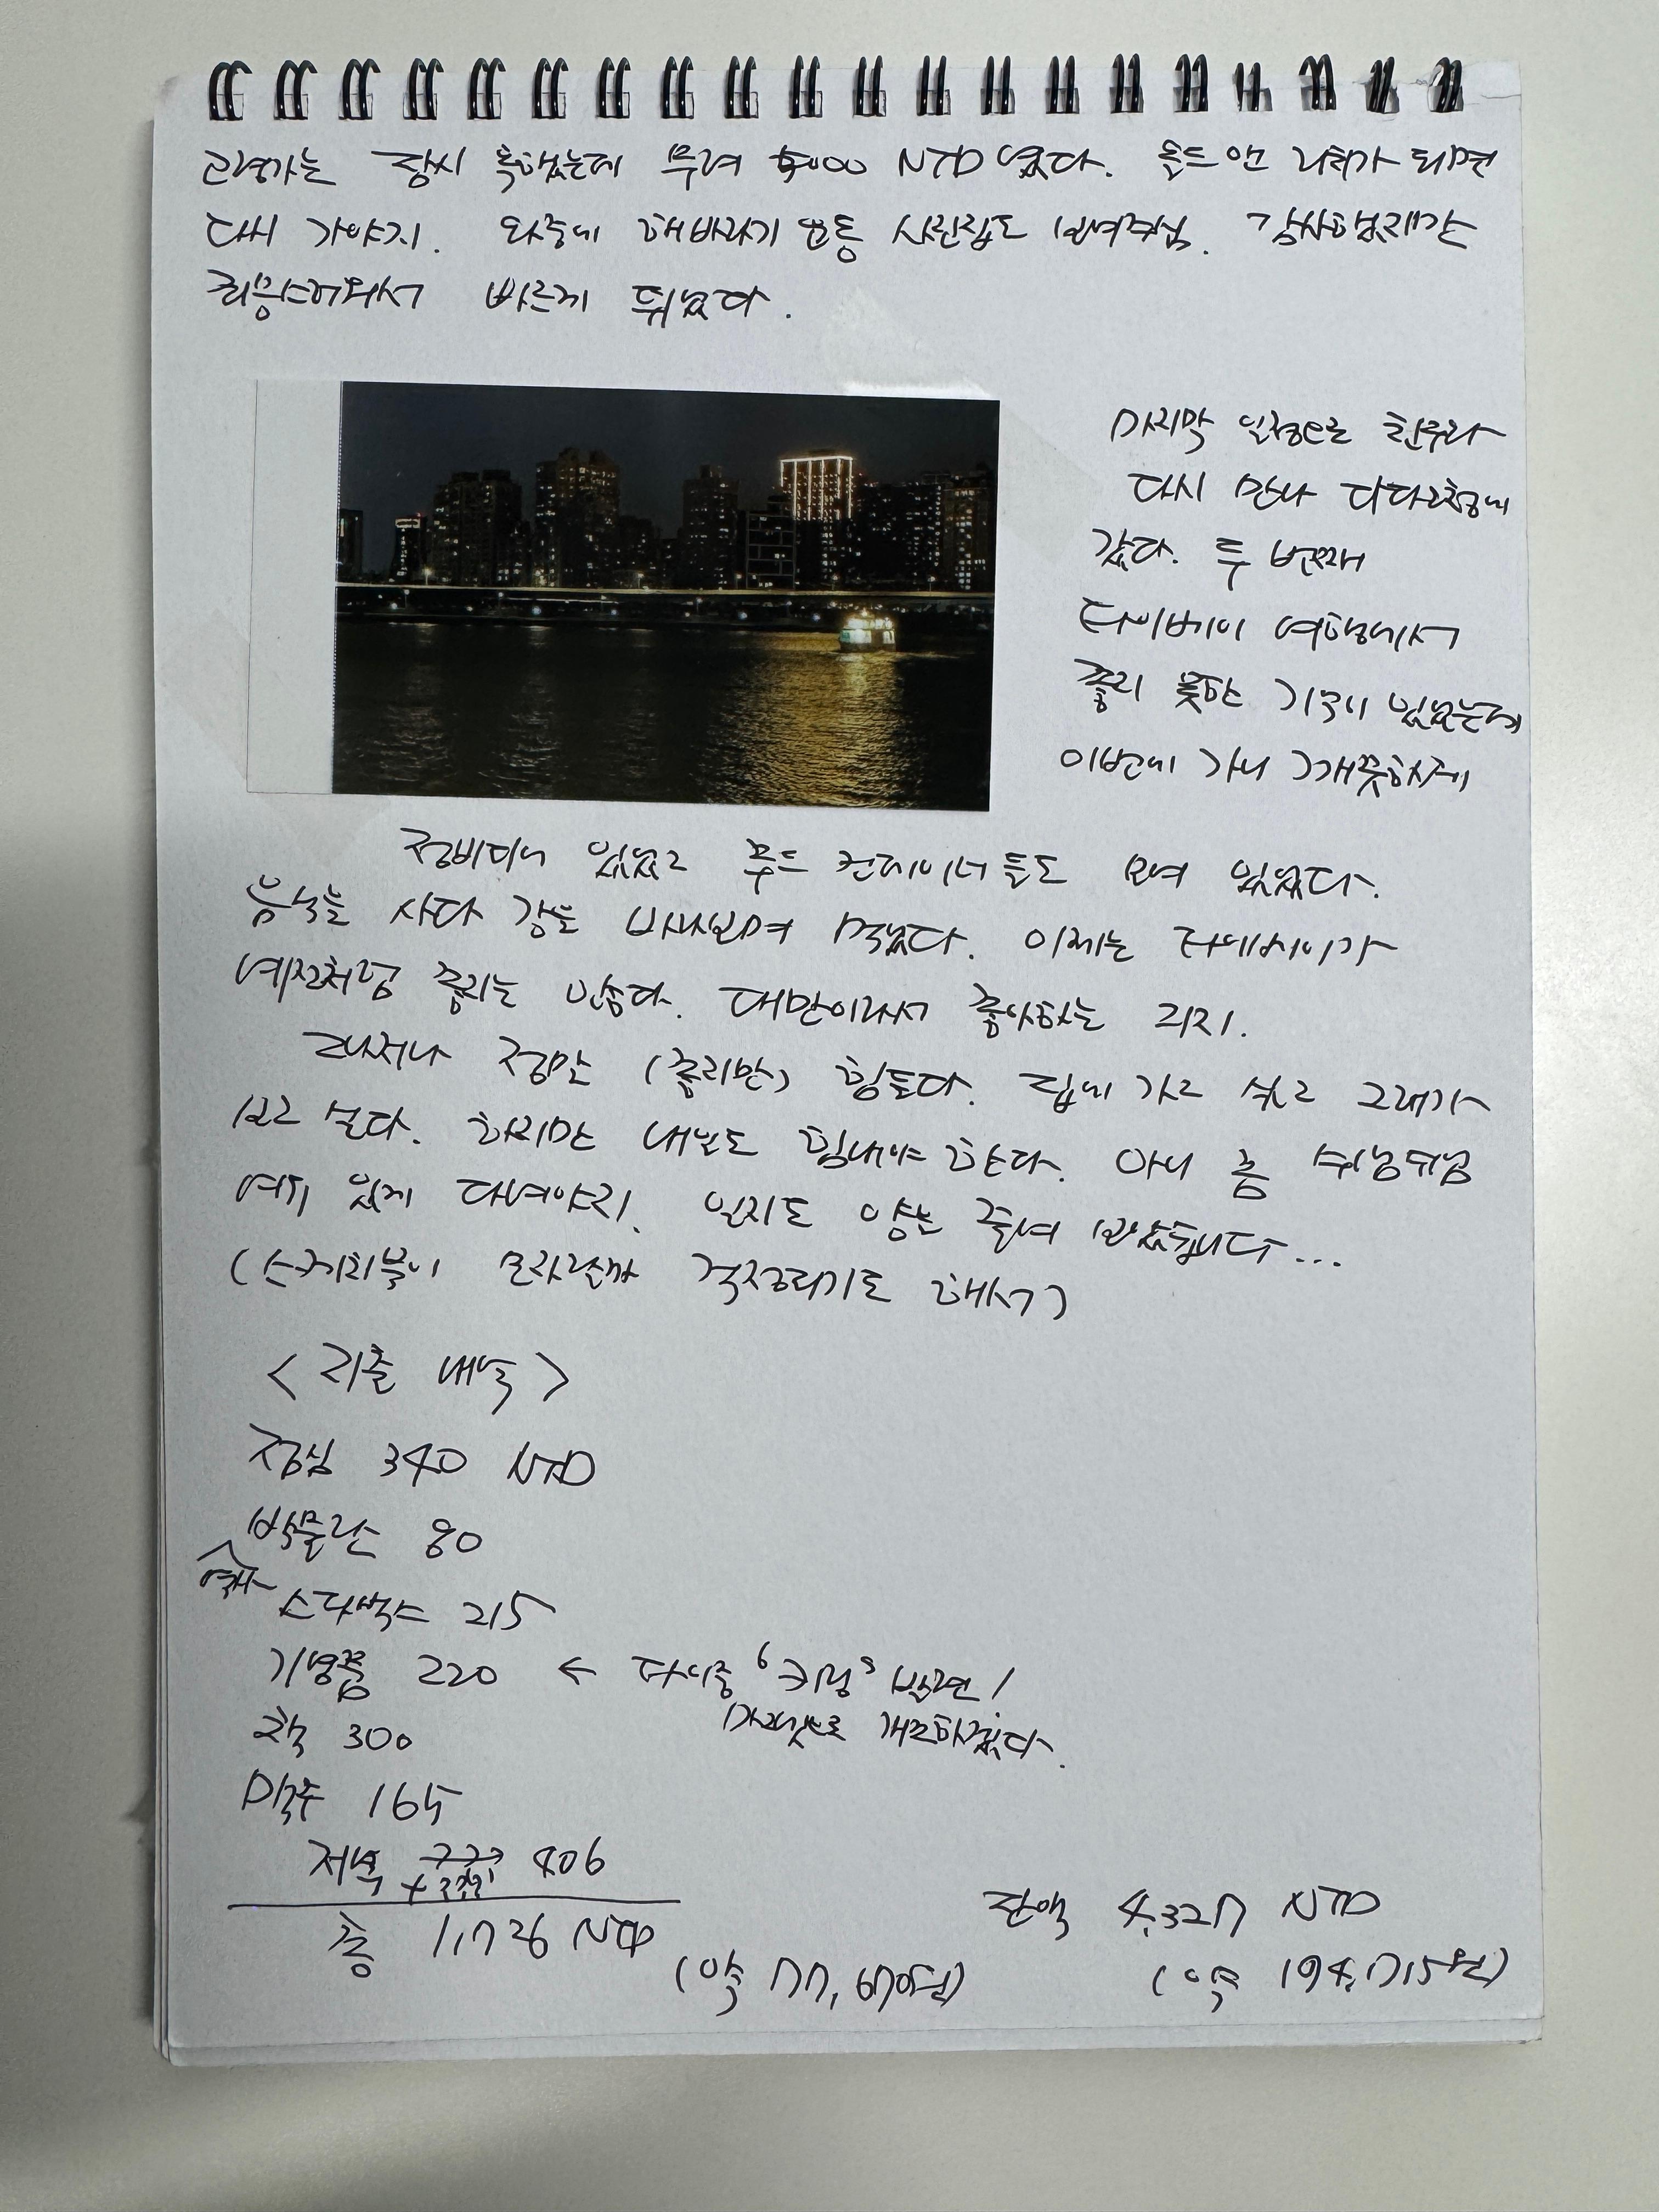 잠시 혹했는데 무려 4000 NTD였다. 올드 앤 리치가 되면
다시 가야지. 와중에 해바라기 운동 사진집도 보여주심. 감사했지만
죄송스러워서 빠르게 튀었다.
마지막 일정으로 친구와
다시 만나 다다청에
갔다. 두 번째
타이베이 여행에서
좋지 못한 기억이 있었는데
이번에 가니 깨끗하게
정비되어 있었고 푸드 컨테이너들도 모여 있었다.
음식을 사다 강을 바라보며 먹었다. 이제는 타이베이가
예전처럼 좋지는 않다. 대만이라서 좋아하는 거지.
그나저나 정말 (좋지만) 힘들다. 집에 가고 싶고 고래가
보고 싶다. 하지만 내일도 힘내야 한다. 아니 좀 쉬엄쉬엄
여유 있게 다녀야지. 일지도 양을 줄여 보았습니다...
(스케치북이 모자랄까 걱정되기도 해서)
< 지출 내역 >
점심 340 NTD
박물관 80
역사
스타벅스 215
기념품 220 ← 타이중 '키링' 발견!
마그넷으로 개조하겠다.
책 300
맥주 165
저녁 406
총 1,726 NTD
(약 77,670원)
잔액 4,327 NTD
(약 194,715원)